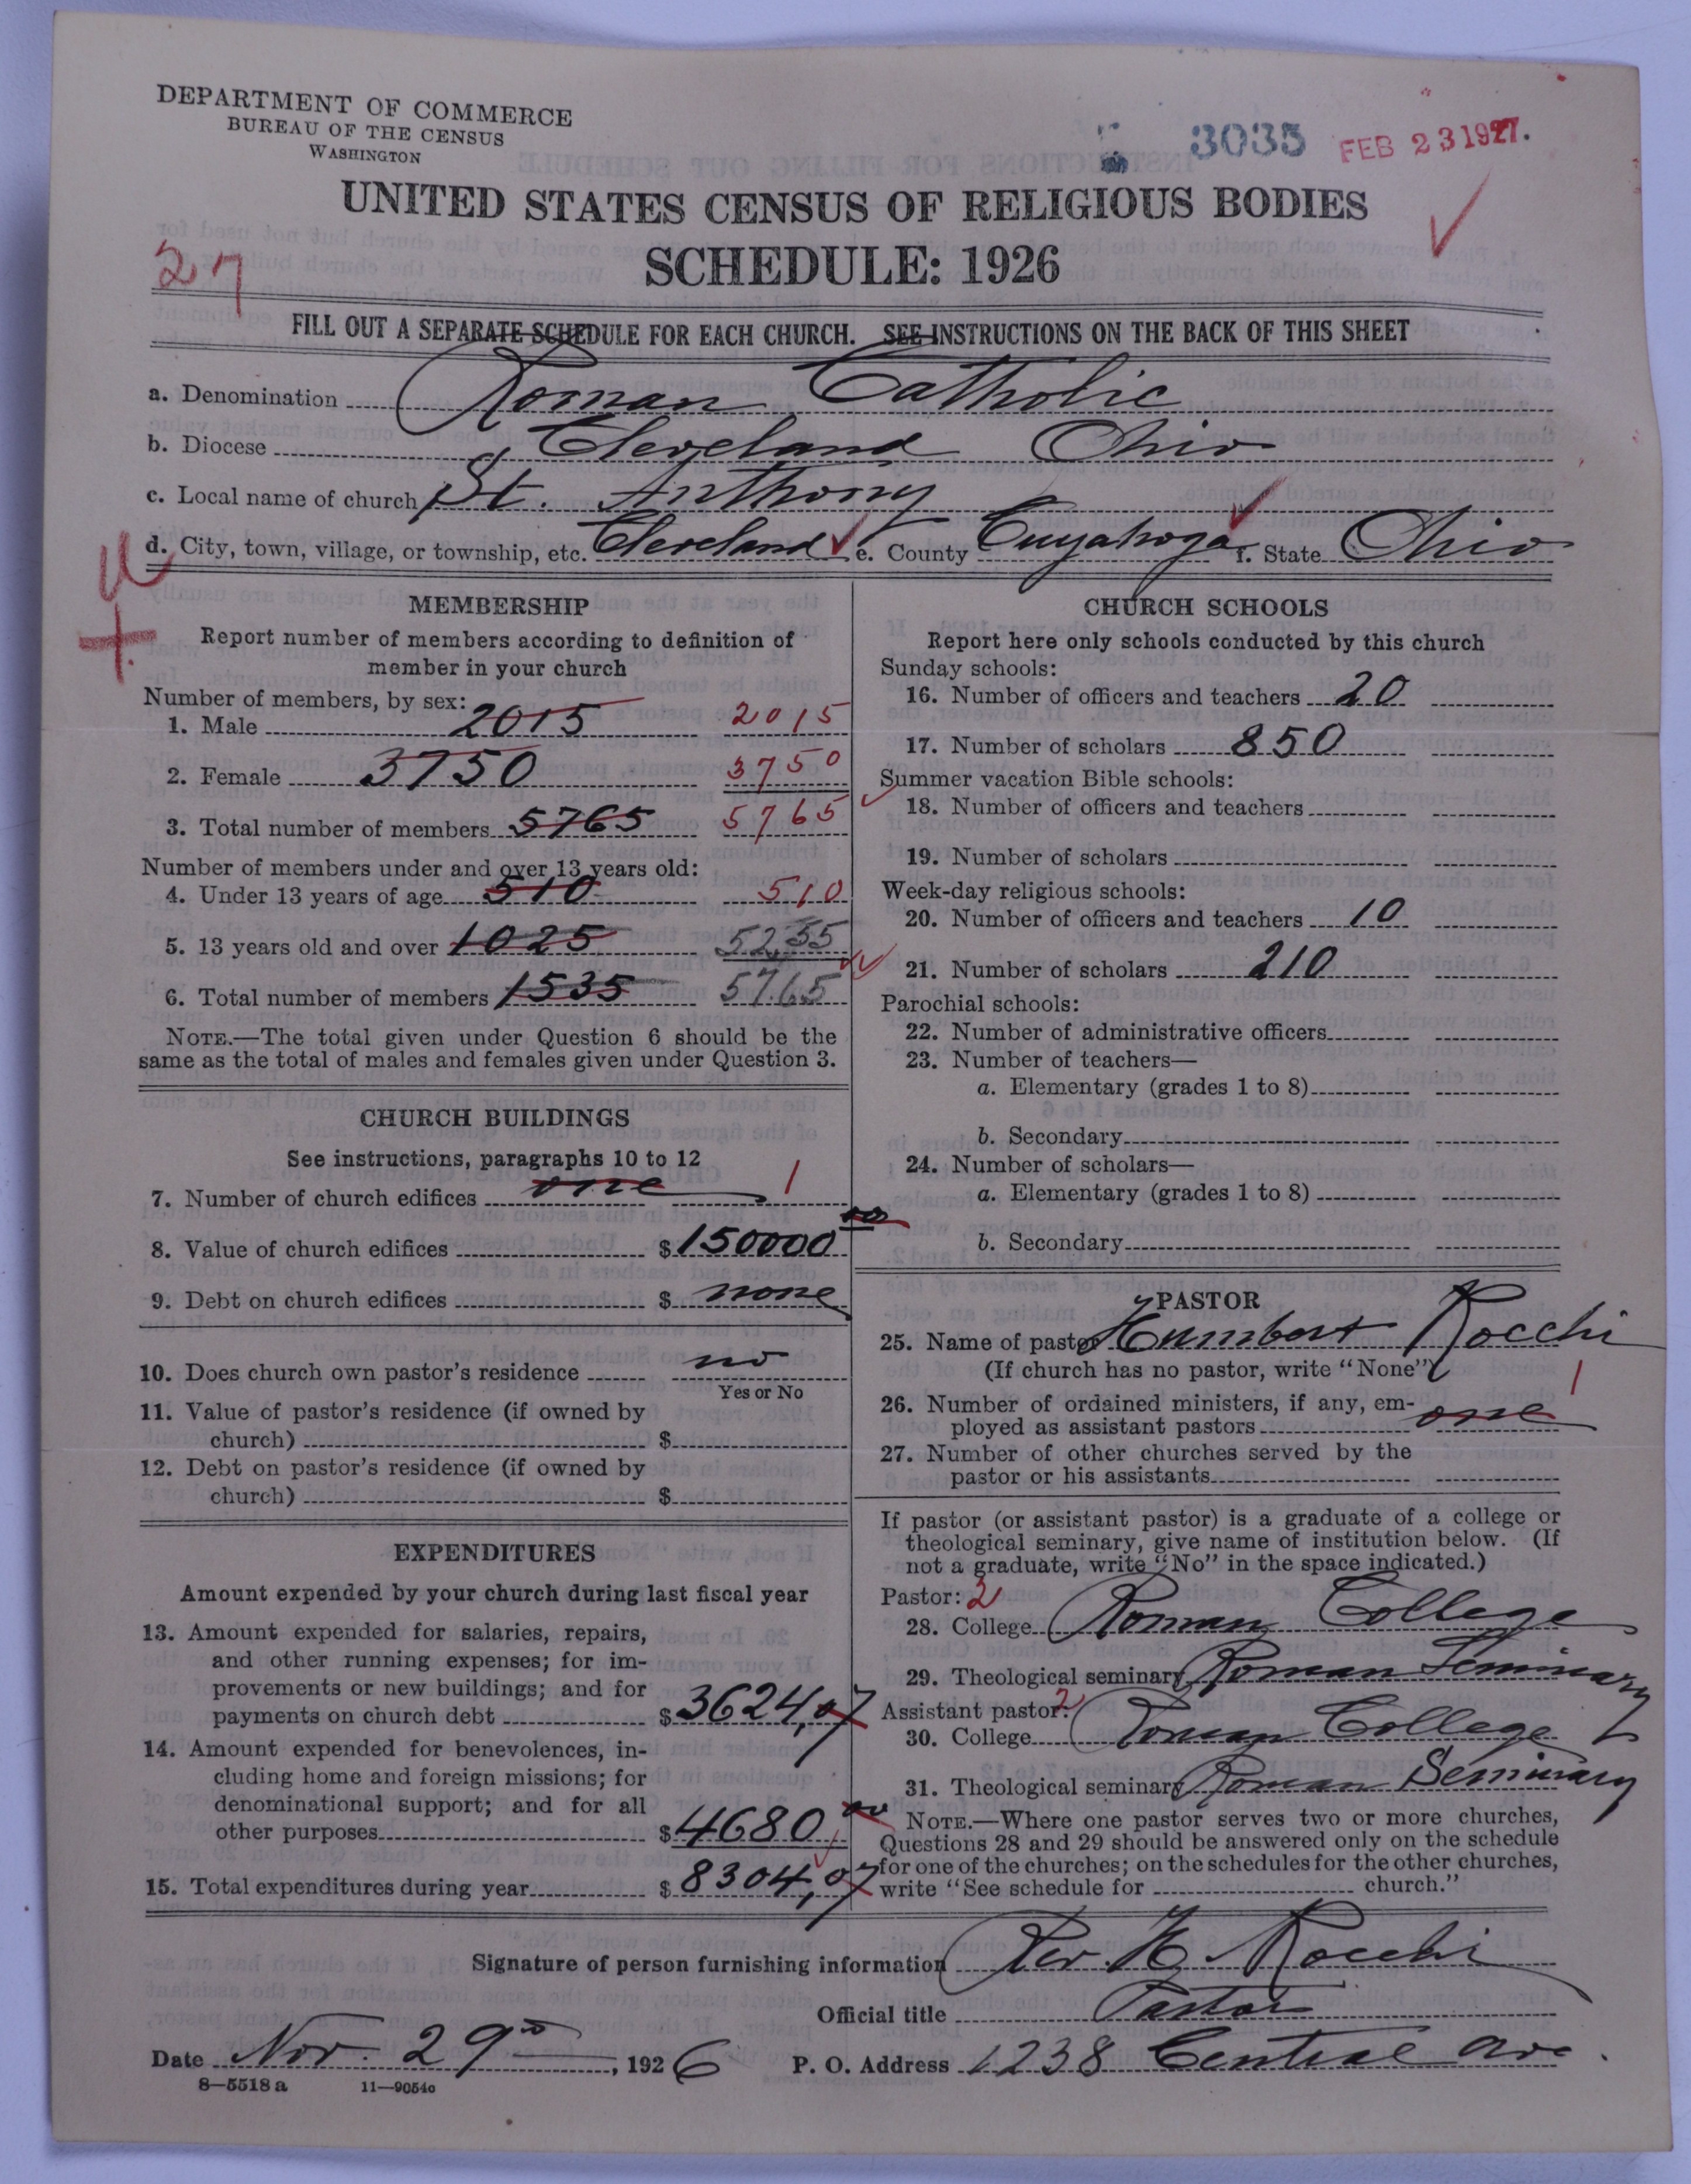 DEPARTMENT OF COMMERCE
BUREAU OF THE CENSUS
WASHINGTON
3035 FEB 23 1927.
UNITED STATES CENSUS OF RELIGIOUS BODIES
SCHEDULE: 1926
27
FILL OUT A SEPARATE SCHEDULE FOR EACH CHURCH. SEE INSTRUCTIONS ON THE BACK OF THIS SHEET
a. Denomination Roman Catholic
b. Diocese Cleveland Ohio
c. Local name of church St. Anthony
d. City, town, village, or township, etc. Cleveland e. County Cuyahoga f. State Ohio
MEMBERSHIP
Report number of members according to definition of
member in your church
Number of members, by sex:
1. Male 2015 2015
2. Female 3750 3750
3. Total number of members 5765 5765
Number of members under and over 13 years old:
4. Under 13 years of age 510 510
5. 13 years old and over 1025 5255
6. Total number of members 1535 5765
NOTE.—The total given under Question 6 should be the
same as the total of males and females given under Question 3.
CHURCH BUILDINGS
See instructions, paragraphs 10 to 12
7. Number of church edifices one 1
8. Value of church edifices $150000 00
9. Debt on church edifices $ none
10. Does church own pastor's residence no
Yes or No
11. Value of pastor's residence (if owned by
church) $
12. Debt on pastor's residence (if owned by
church) $
EXPENDITURES
Amount expended by your church during last fiscal year
13. Amount expended for salaries, repairs,
and other running expenses; for im-
provements or new buildings; and for
payments on church debt $3624,07
14. Amount expended for benevolences, in-
cluding home and foreign missions; for
denominational support; and for all
other purposes $4680 00
15. Total expenditures during year $8304,07
CHURCH SCHOOLS
Report here only schools conducted by this church
Sunday schools:
16. Number of officers and teachers 20
17. Number of scholars 850
Summer vacation Bible schools:
18. Number of officers and teachers
19. Number of scholars
Week-day religious schools:
20. Number of officers and teachers 10
21. Number of scholars 210
Parochial schools:
22. Number of administrative officers
23. Number of teachers—
a. Elementary (grades 1 to 8)
b. Secondary
24. Number of scholars—
a. Elementary (grades 1 to 8)
b. Secondary
PASTOR
25. Name of pastor Humbert Rocchi
(If church has no pastor, write "None")
26. Number of ordained ministers, if any, em-
ployed as assistant pastors one 1
27. Number of other churches served by the
pastor or his assistants
If pastor (or assistant pastor) is a graduate of a college or
theological seminary, give name of institution below. (If
not a graduate, write "No" in the space indicated.)
Pastor: 2
28. College Roman College
29. Theological seminary Roman Seminary
Assistant pastor: 2
30. College Roman College
31. Theological seminary Roman Seminary
NOTE.—Where one pastor serves two or more churches,
Questions 28 and 29 should be answered only on the schedule
for one of the churches; on the schedules for the other churches,
write "See schedule for church."
Signature of person furnishing information Rev H. Rocchi
Official title Pastor
Date Nov. 29, 1926 P. O. Address 1238 Central Ave.
8—5518a 11—9054c